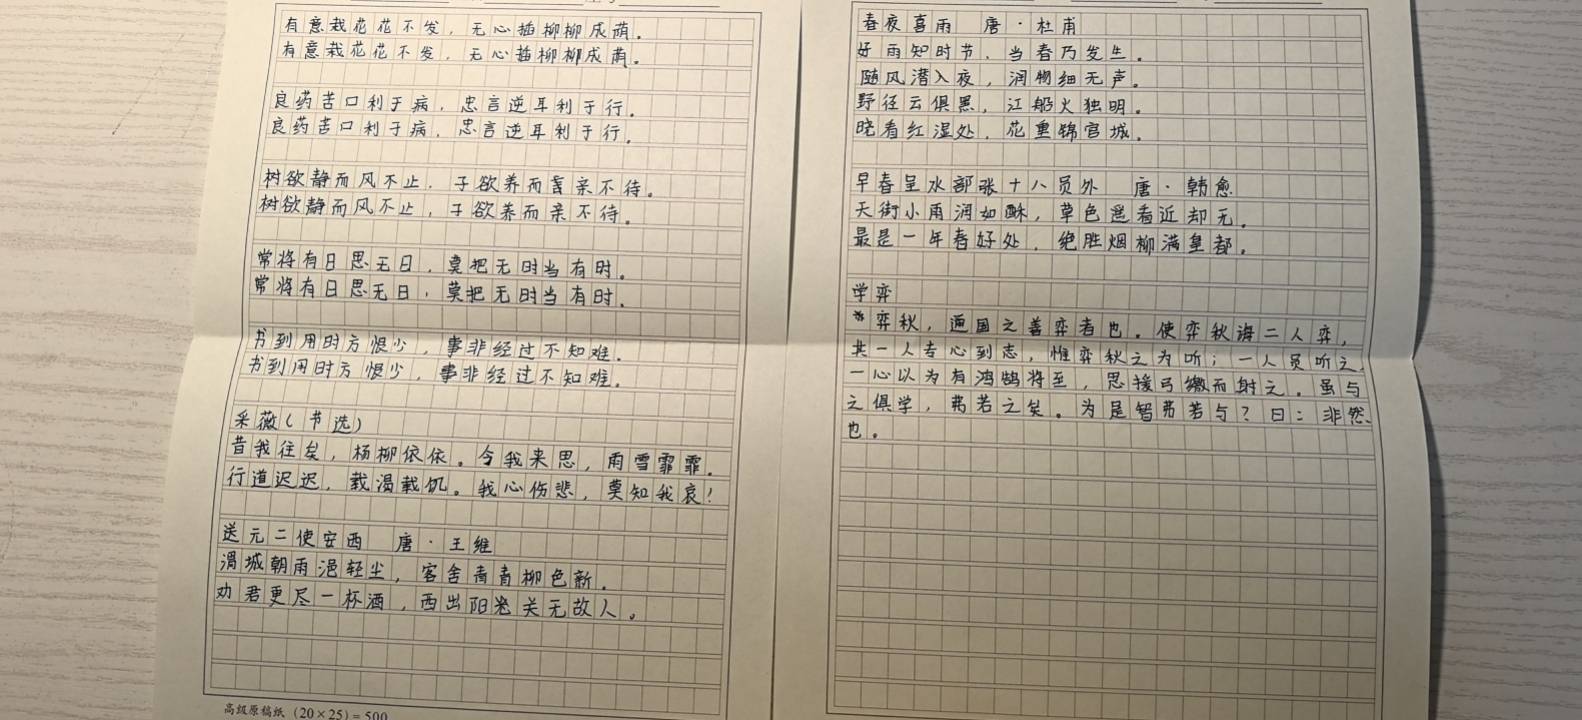 有意栽花花不发，无心插柳柳成荫。
有意栽花花不发，无心插柳柳成荫。
良药苦口利于病，忠言逆耳利于行。
良药苦口利于病，忠言逆耳利于行。
树欲静而风不止，子欲养而亲不待。
树欲静而风不止，子欲养而亲不待。
常将有日思无日，莫把无时当有时。
常将有日思无日，莫把无时当有时。
书到用时方恨少，事非经过不知难。
书到用时方恨少，事非经过不知难。
采薇（节选）
昔我往矣，杨柳依依。今我来思，雨雪霏霏。
行道迟迟，载渴载饥。我心伤悲，莫知我哀！
送元二使安西 唐·王维
渭城朝雨浥轻尘，客舍青青柳色新。
劝君更尽一杯酒，西出阳关无故人。
高级原稿纸（20×25）=500
春夜喜雨 唐·杜甫
好雨知时节，当春乃发生。
随风潜入夜，润物细无声。
野径云俱黑，江船火独明。
晓看红湿处，花重锦官城。
早春呈水部张十八员外 唐·韩愈
天街小雨润如酥，草色遥看近却无。
最是一年春好处，绝胜烟柳满皇都。
学弈
弈秋，通国之善弈者也。使弈秋诲二人弈，
其一人专心到志，惟弈秋之为听；一人虽听之，
一心以为有鸿鹄将至，思援弓缴而射之。虽与
之俱学，弗若之矣。为是智弗若与？曰：非然
也。